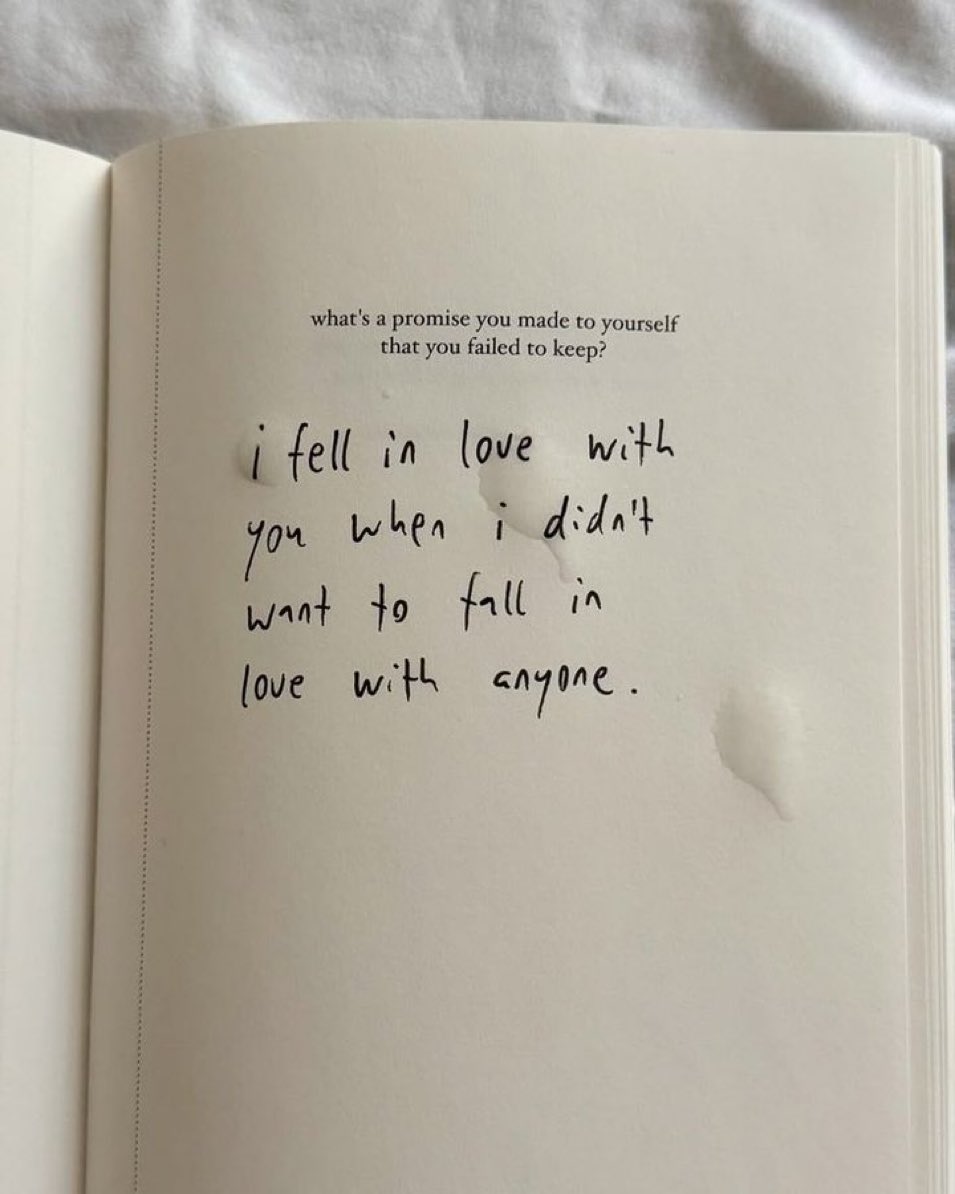 what's a promise you made to yourself
that you failed to keep?
i fell in love with
you when i didn't
want to fall in
love with anyone.